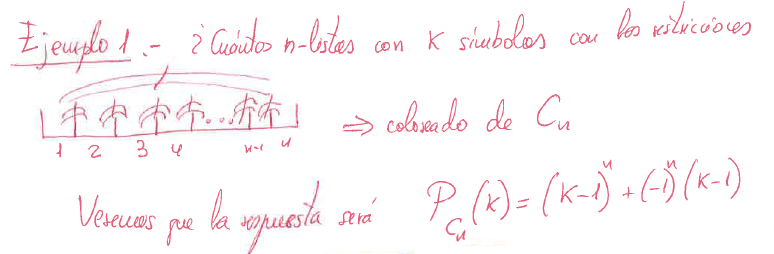 Ejemplo 1.- ¿Cuántos n-listas con K símbolos con las restricciones
1 2 3 4 ... n-1 n
⇒ coloreado de Cₙ
Veremos que la respuesta será P_{Cₙ}(K) = (K-1)ⁿ + (-1)ⁿ(K-1)